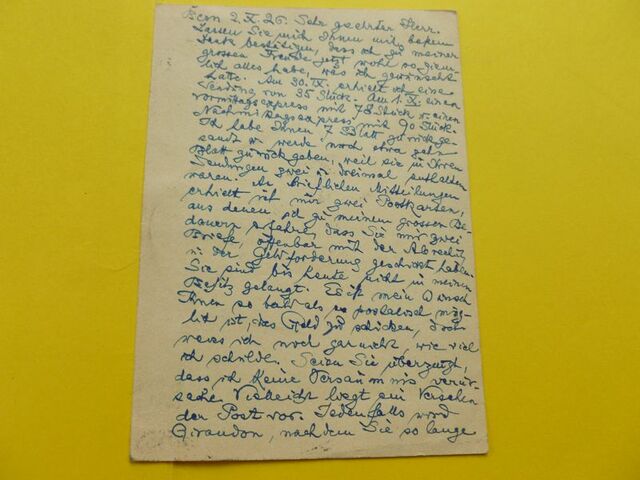 Bern 2.X.26. Sehr geehrter Herr.
Lassen Sie mich Ihnen bestem
Danke bestätigen, dass ich zu meiner
grossen Freude jetzt wohl so ziem-
lich alles habe, was ich gewünscht
hatte. Am 30.IX. erhielt ich eine
Sendung von 35 Stück. Am 1.X. einen
Vormittagsexpress mit 78 Stück u. einen
Nachmittagsexpress mit 90 Stück.
Ich habe Ihnen 7 Blatt zurückge-
sandt u. werde noch etwa zehn
Blatt zurückgeben, weil sie in Ihren
Sendungen zwei u. dreimal enthalten
waren. An brieflichen Mitteilungen
erhielt ich nur zwei Postkarten,
aus denen ich zu meinem grossen Be-
dauern erfahre, dass Sie mir zwei
Briefe, offenbar mit der
in der Geldforderung geschickt haben.
Sie sind bis heute nicht in meinen
Besitz gelangt. Es ist mein Wunsch
Ihnen so bald als es postalisch mög-
lich ist, das Geld zu schicken, doch
weiss ich noch gar nicht, wie viel
ich schulde. Seien Sie überzeugt,
dass ich keine Versäumnis verur-
sache. Vielleicht liegt ein Versehen
der Post vor. Jedenfalls wird
Giraudon, nachdem Sie so lange